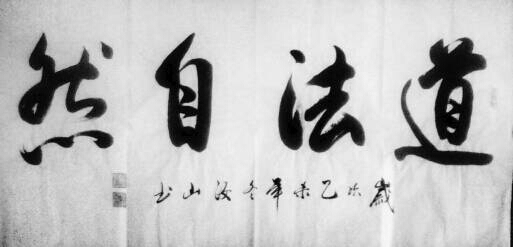 道法自然
歲次乙未年冬汝山书